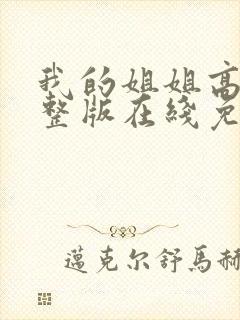 我的姐姐高
整版在綫免
邁克尔舒馬赫